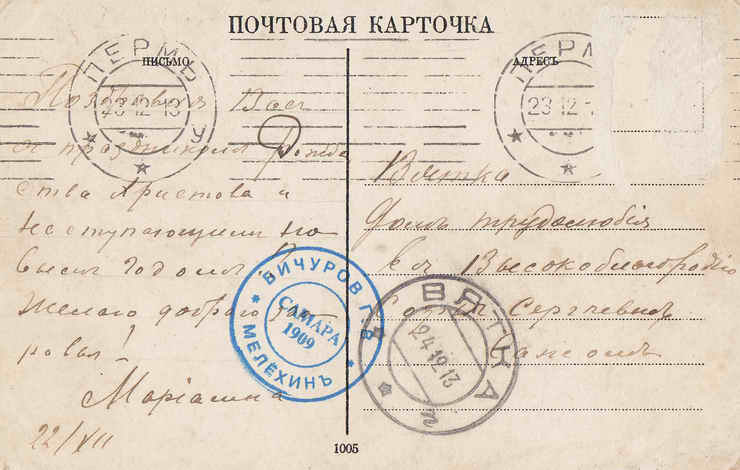 ПОЧТОВАЯ КАРТОЧКА
ПИСЬМО
АДРЕСЪ
ПЕРМЬ
23 12 13
ПЕРМ
23 12 1
Поздравляю Васъ
съ праздникомъ Рожде
ства Христова и
наступающимъ но
вымъ годомъ
Желаю добраго здо
ровья!
Маріанна
22/XII
Вятка
Домъ трудолюбія
Ея Высокоблагородію
Софіи Сергѣевнѣ
БИЧУРОВ Г. В
САМАРА
1909
МЕЛЁХИНЪ
ВЯТКА
24 12 13
1005